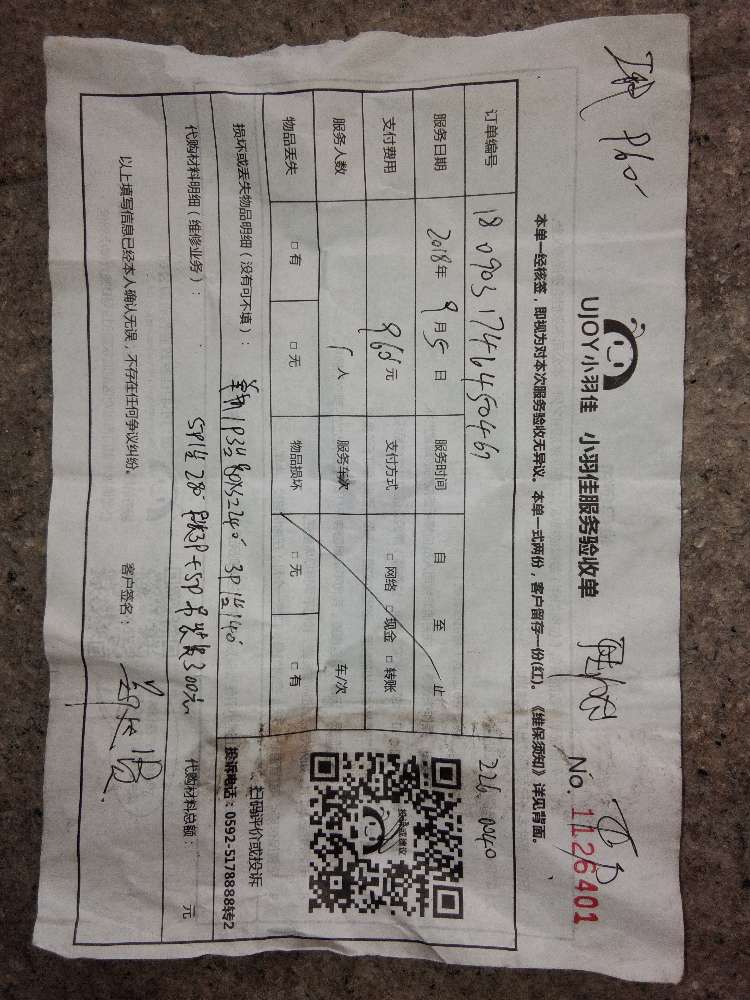 UJOY小羽佳 小羽佳服务验收单
No. 1126401
本单一经核签，即视为对本次服务验收无异议。本单一式两份，客户留存一份(红)。《维保须知》详见背面。
订单编号 1809031746450467
服务日期 2018年9月5日 服务时间 自 至 止
支付费用 960元 支付方式 □网络 □现金 □转账
服务人数 1人 服务车次 车/次
物品丢失 □有 □无 物品损坏 □无 □有
损坏或丢失物品明细（没有可不填）：
3P1台140
代购材料明细（维修业务）：
5P1台280
3P+5P
300元
代购材料总额： 元
以上填写信息已经本人确认无误，不存在任何争议纠纷。 客户签名：
扫码评价或投诉
投诉电话：0592-5178888转2
960